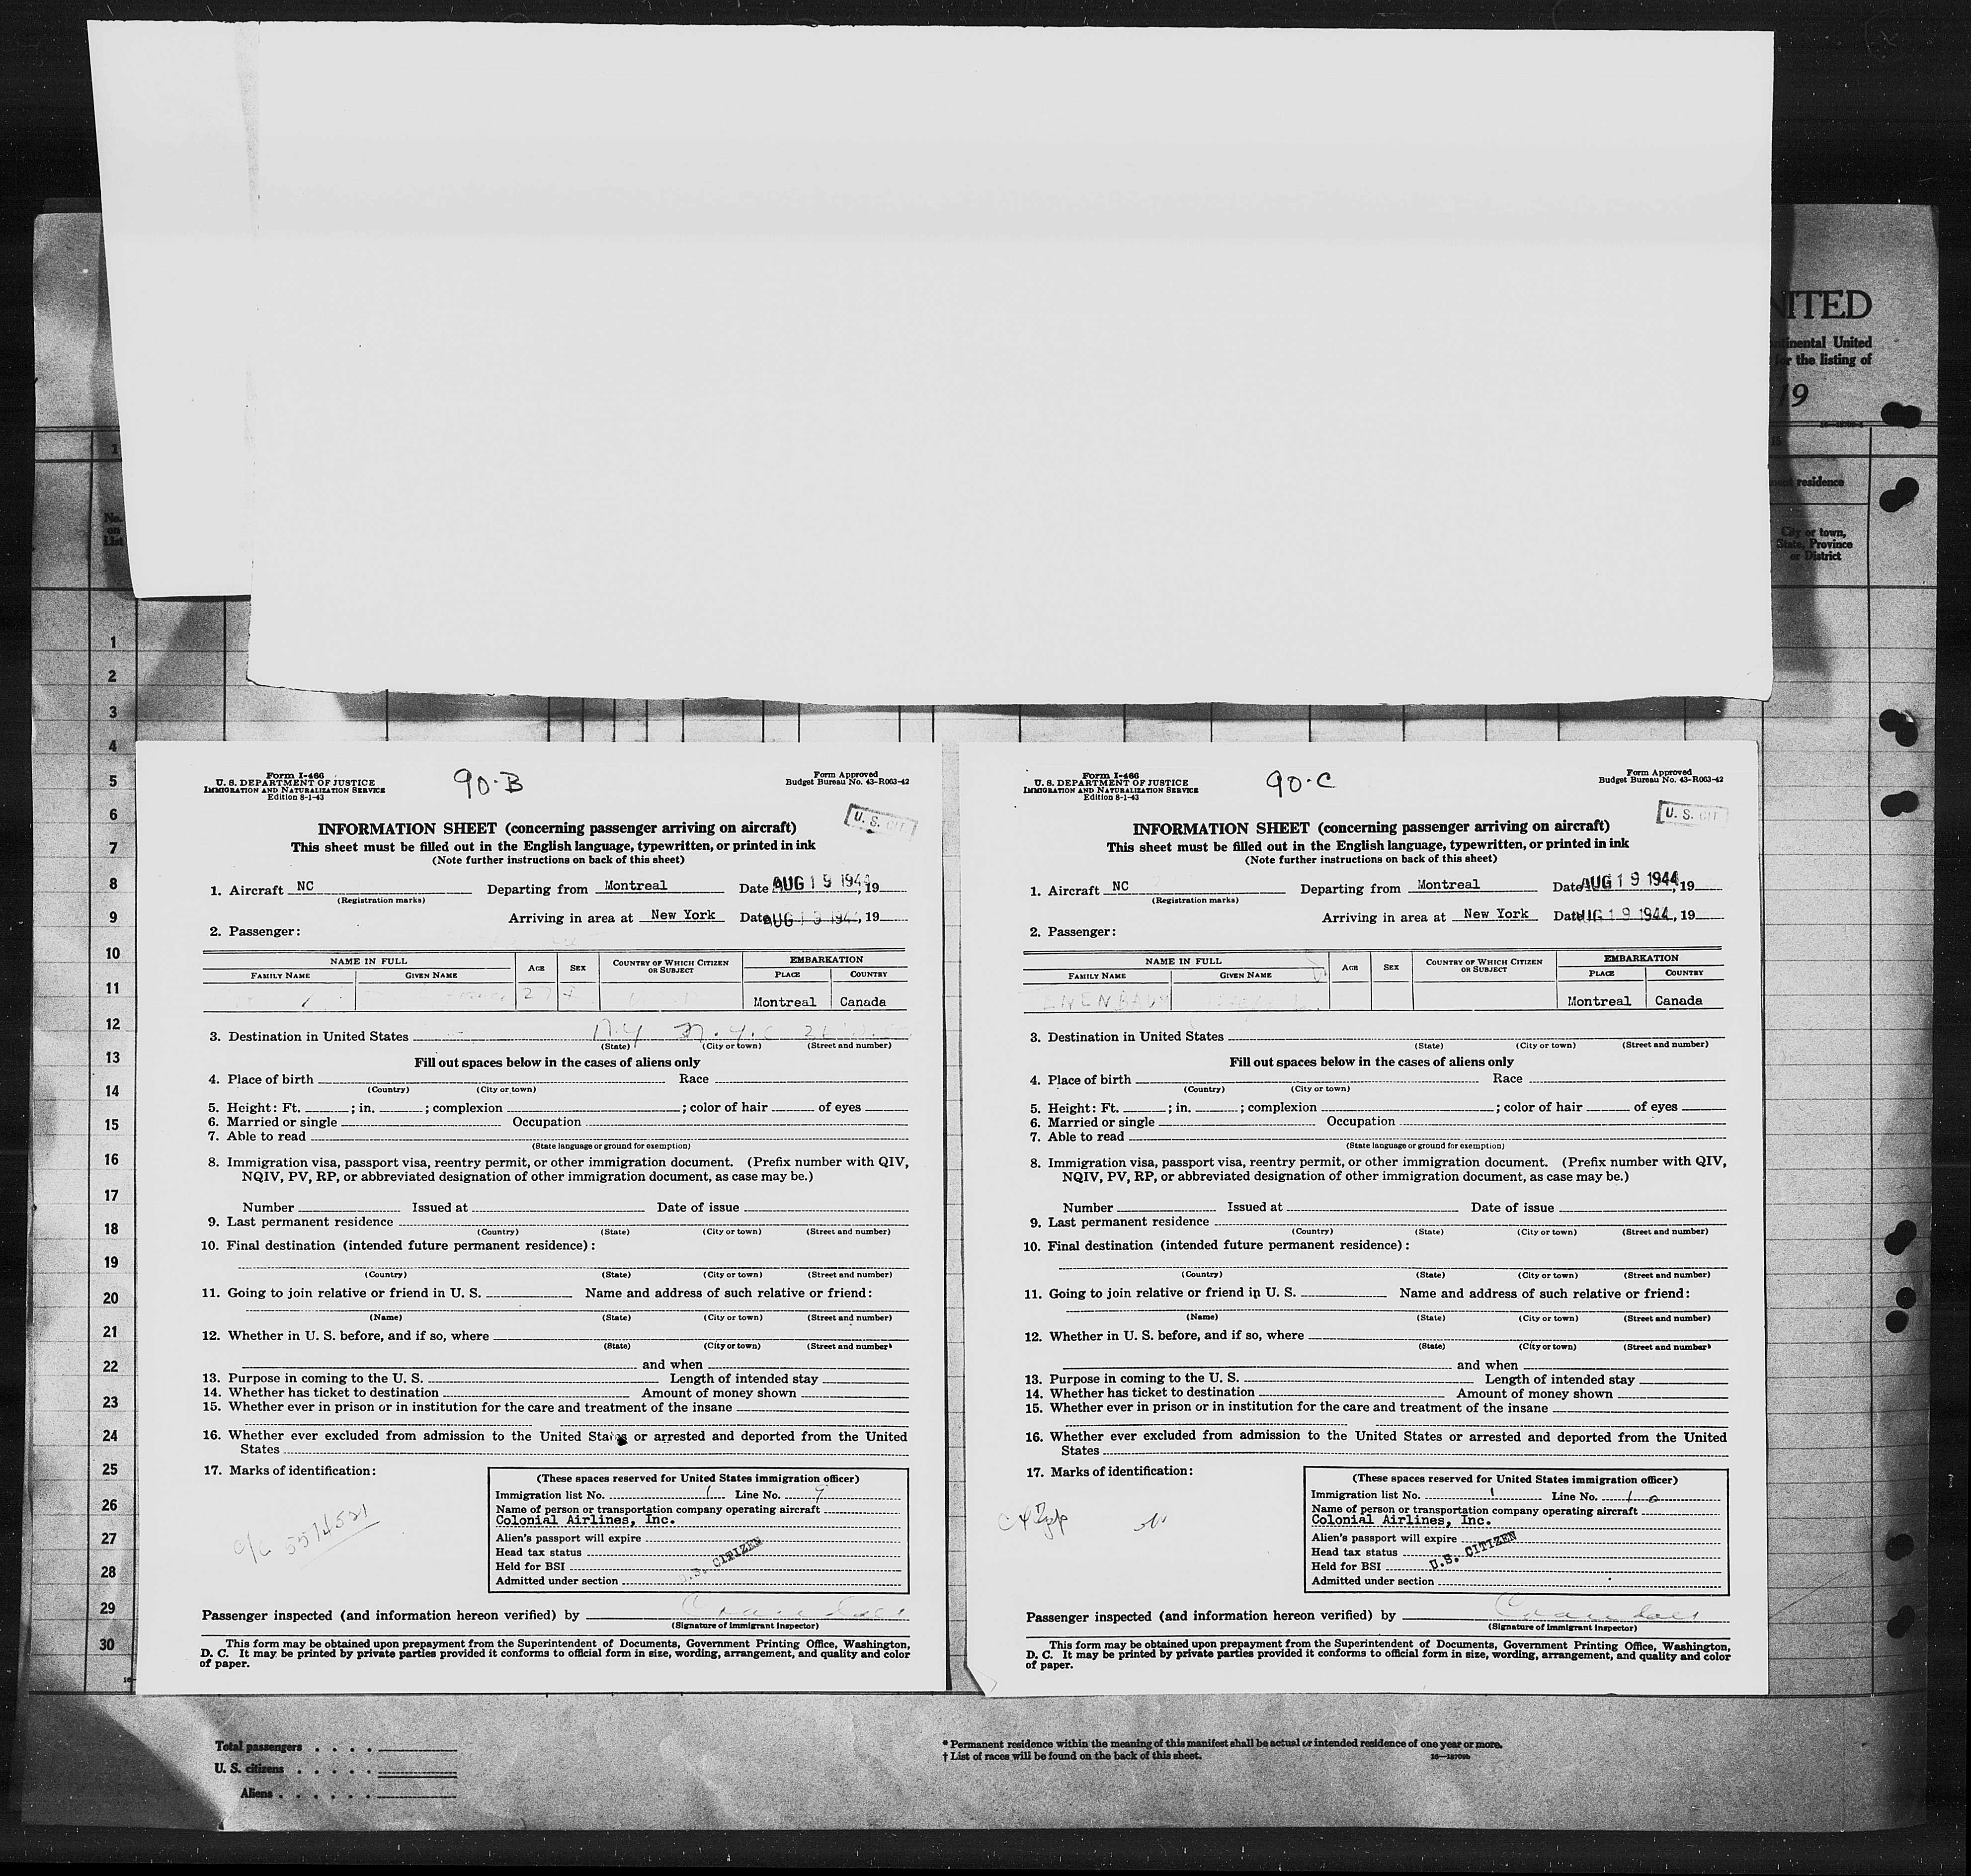 NITED
ntinental United
for the listing of
19
1
residence
No.
on
List
City or town,
State, Province
or District
1
2
3
4
5
6
7
8
9
10
11
12
13
14
15
16
17
18
19
20
21
22
23
24
25
26
27
28
29
30
Form I-466
U. S. DEPARTMENT OF JUSTICE
IMMIGRATION AND NATURALIZATION SERVICE
Edition 8-1-43
90-B
Form Approved
Budget Bureau No. 43-R063-42
U. S. CIT
INFORMATION SHEET (concerning passenger arriving on aircraft)
This sheet must be filled out in the English language, typewritten, or printed in ink
(Note further instructions on back of this sheet)
1. Aircraft NC Departing from Montreal Date AUG 19 1944, 19
(Registration marks)
Arriving in area at New York Date AUG 19 1944, 19
2. Passenger:
NAME IN FULL AGE SEX COUNTRY OF WHICH CITIZEN OR SUBJECT EMBARKATION
FAMILY NAME GIVEN NAME PLACE COUNTRY
Montreal Canada
3. Destination in United States N.Y N.Y.C
(State) (City or town) (Street and number)
Fill out spaces below in the cases of aliens only
4. Place of birth Race
(Country) (City or town)
5. Height: Ft. ; in. ; complexion ; color of hair of eyes
6. Married or single Occupation
7. Able to read
(State language or ground for exemption)
8. Immigration visa, passport visa, reentry permit, or other immigration document. (Prefix number with QIV,
NQIV, PV, RP, or abbreviated designation of other immigration document, as case may be.)
Number Issued at Date of issue
9. Last permanent residence
(Country) (State) (City or town) (Street and number)
10. Final destination (intended future permanent residence):
(Country) (State) (City or town) (Street and number)
11. Going to join relative or friend in U. S. Name and address of such relative or friend:
(Name) (State) (City or town) (Street and number)
12. Whether in U. S. before, and if so, where
(State) (City or town) (Street and number)
and when
13. Purpose in coming to the U. S. Length of intended stay
14. Whether has ticket to destination Amount of money shown
15. Whether ever in prison or in institution for the care and treatment of the insane
16. Whether ever excluded from admission to the United States or arrested and deported from the United
States
17. Marks of identification:
c/c 5514521
(These spaces reserved for United States immigration officer)
Immigration list No. 1 Line No. 9
Name of person or transportation company operating aircraft
Colonial Airlines, Inc.
Alien's passport will expire
Head tax status
Held for BSI
Admitted under section
U.S. CITIZEN
Passenger inspected (and information hereon verified) by
(Signature of immigrant inspector)
This form may be obtained upon prepayment from the Superintendent of Documents, Government Printing Office, Washington,
D. C. It may be printed by private parties provided it conforms to official form in size, wording, arrangement, and quality and color
of paper.
Form I-466
U. S. DEPARTMENT OF JUSTICE
IMMIGRATION AND NATURALIZATION SERVICE
Edition 8-1-43
90-C
Form Approved
Budget Bureau No. 43-R063-42
U. S. CIT
INFORMATION SHEET (concerning passenger arriving on aircraft)
This sheet must be filled out in the English language, typewritten, or printed in ink
(Note further instructions on back of this sheet)
1. Aircraft NC Departing from Montreal Date AUG 19 1944, 19
(Registration marks)
Arriving in area at New York Date AUG 19 1944, 19
2. Passenger:
NAME IN FULL AGE SEX COUNTRY OF WHICH CITIZEN OR SUBJECT EMBARKATION
FAMILY NAME GIVEN NAME PLACE COUNTRY
Montreal Canada
3. Destination in United States
(State) (City or town) (Street and number)
Fill out spaces below in the cases of aliens only
4. Place of birth Race
(Country) (City or town)
5. Height: Ft. ; in. ; complexion ; color of hair of eyes
6. Married or single Occupation
7. Able to read
(State language or ground for exemption)
8. Immigration visa, passport visa, reentry permit, or other immigration document. (Prefix number with QIV,
NQIV, PV, RP, or abbreviated designation of other immigration document, as case may be.)
Number Issued at Date of issue
9. Last permanent residence
(Country) (State) (City or town) (Street and number)
10. Final destination (intended future permanent residence):
(Country) (State) (City or town) (Street and number)
11. Going to join relative or friend in U. S. Name and address of such relative or friend:
(Name) (State) (City or town) (Street and number)
12. Whether in U. S. before, and if so, where
(State) (City or town) (Street and number)
and when
13. Purpose in coming to the U. S. Length of intended stay
14. Whether has ticket to destination Amount of money shown
15. Whether ever in prison or in institution for the care and treatment of the insane
16. Whether ever excluded from admission to the United States or arrested and deported from the United
States
17. Marks of identification:
(These spaces reserved for United States immigration officer)
Immigration list No. 1 Line No. 10
Name of person or transportation company operating aircraft
Colonial Airlines, Inc.
Alien's passport will expire
Head tax status
Held for BSI
Admitted under section
U.S. CITIZEN
Passenger inspected (and information hereon verified) by
(Signature of immigrant inspector)
This form may be obtained upon prepayment from the Superintendent of Documents, Government Printing Office, Washington,
D. C. It may be printed by private parties provided it conforms to official form in size, wording, arrangement, and quality and color
of paper.
Total passengers
U. S. citizens
Aliens
* Permanent residence within the meaning of this manifest shall be actual or intended residence of one year or more.
† List of races will be found on the back of this sheet.